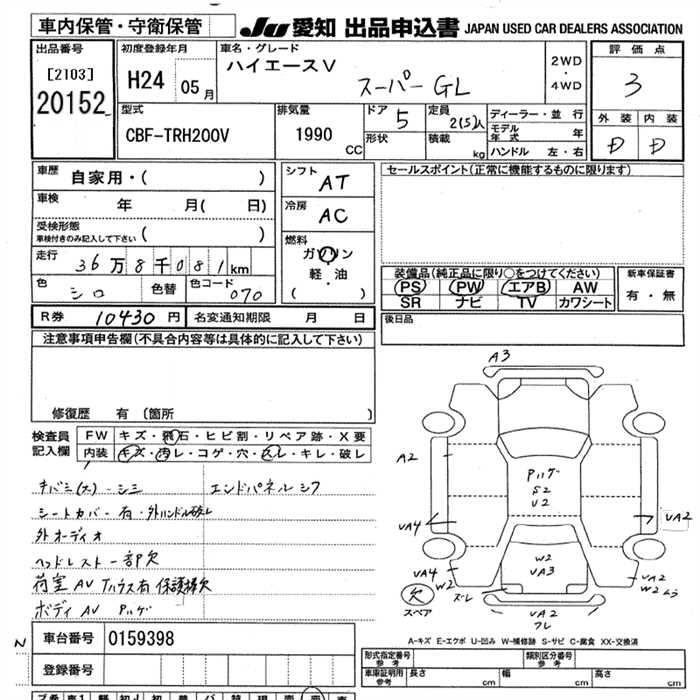 車内保管・守衛保管
JU 愛知 出品申込書 JAPAN USED CAR DEALERS ASSOCIATION
出品番号
[2103]
20152
初度登録年月
H24 05月
車名・グレード
ハイエースV
スーパーGL
2WD
・
4WD
評価点
3
外装 内装
D D
型式
CBF-TRH200V
排気量
1990
CC
ドア 5
形状
定員
2(5)人
積載
kg
ディーラー・並行
モデル年式 年
ハンドル 左・右
車歴
自家用・( )
車検
年 月( 日)
受検形態
車検付きのみ記入して下さい ( )
走行
36万8千081km
色
シロ
色替
色コード
070
シフト
AT
冷房
AC
燃料
ガソリン
軽・油
( )
セールスポイント(正常に機能するものに限ります)
装備品(純正品に限り○をつけてください)
PS PW エアB AW
SR ナビ TV カワシート
新車保証書
有・無
R券 10430円 名変通知期限 月 日
後日品
注意事項申告欄(不具合内容等は具体的に記入して下さい)
修復歴 有 〔箇所 〕
検査員
記入欄
FW キズ・飛石・ヒビ割・リペア跡・X要
内装 キズ・汚レ・コゲ・穴・スレ・キレ・破レ
キバミ(大)・シミ エンドパネルシワ
シートカバー有・外ハンドル破レ
外オーディオ
ヘッドレスト一部欠
荷室AV 保護棒欠
ボディAV Pハゲ
A3
A2
Pハゲ
S2
U2
UA4
UA2
UA4
W2
W2
UA3
UA2
W2ムラ
欠
スペア
ズレ
UA2
ワレ
A-キズ E-エクボ U-凹み W-補修跡 S-サビ C-腐食 XX-交換済
N
車台番号 0159398
登録番号
型式指定番号
参考
類別区分番号
参考
車庫証明用
参考
長さ cm 幅 cm 高さ cm